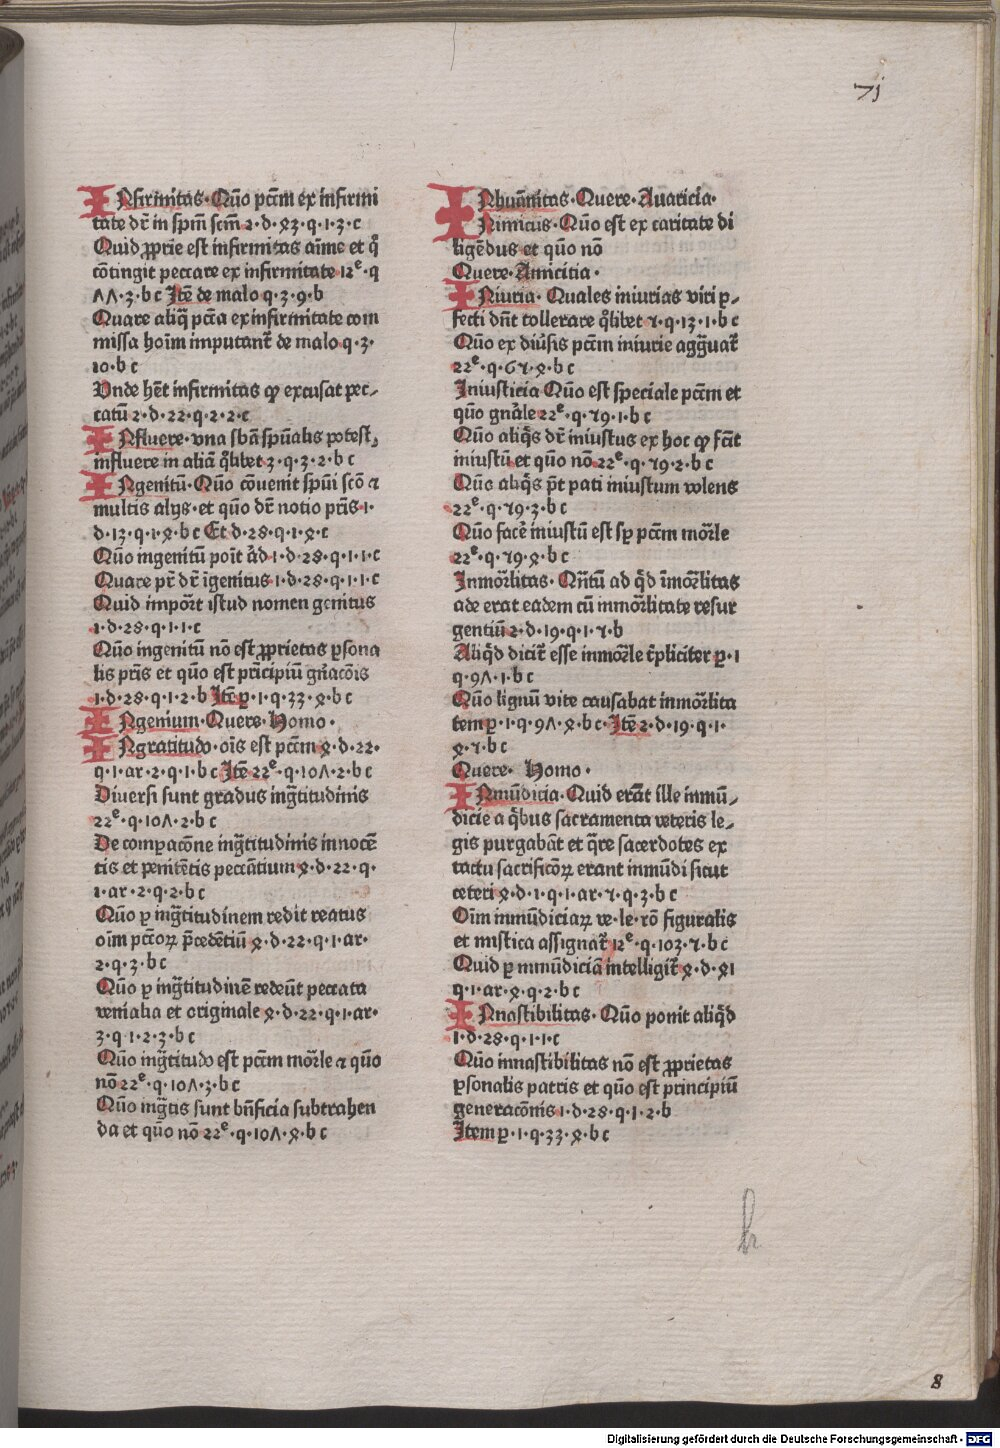 71
INfirmitas· Quō pctm̄ ex infirmi
tate dr̄ in spm̄ scm̄ 2·d·ꝝ3·q·1·3·c
Quid ꝓprie est infirmitas aīme et qͦ
cōtingit peccare ex infirmitate 12ᵉ·q
ΛΛ·3·b c Itē de malo q·3·9·b
Quare aliqͣ pctā ex infirmitate com
missa hoīm imputantr̄ de malo q·3·
10·b c
Vnde hēt infirmitas ꝙ excusat pec⸗
catū 2·d·22·q·2·2·c
INfluere· vna sbā spūalis potest
influere in aliā qͦlibet 3·q·3·2·b c
INgenitū· Quō cōuenit spūi scō ⁊
multis alys· et quō dr̄ notio pr̄is 1·
d·13·q·1·ꝝ·b c Et d·28·q·1·ꝝ·c
Quō ingenitū poīt ād 1·d·28·q·1·1·c
Quare pr̄ dr̄ īgenitus 1·d·28·q·1·1·c
Quid impōrt istud nomen genitus
1·d·28·q·1·1·c
Quō ingenitū nō est ꝓprietas ꝑsona
lis pr̄is et quō est prīcipiū gn̄acōis
1·d·28·q·1·2·b Itē ꝑ·1·q·33·ꝝ·b c
INgenium· Quere· Homo·
INgratitudo· oīs est pctm̄ ꝝ·d·22·
q·1·ar·2·q·1·b c Itē 22ᵉ·q·10Λ·2·b c
Diuersi sunt gradus ingͣtitudinis
22ᵉ·q·10Λ·2·b c
De compacōne ingͣtitudinis innocē
tis et penitētis peccātium ꝝ·d·22·q·
1·ar·2·q·2·b c
Quō ꝑ ingͣtitudinem redit reatus
oīm pctōꝝ p̄cedētiū ꝝ·d·22·q·1·ar·
2·q·3·b c
Quō ꝑ ingͣtitudinē redeūt peccata
venialia et originale ꝝ·d·22·q·1·ar·
3·q·1·2·3·b c
Quō ingͣtitudo est pctm̄ mōrle ⁊ quō
nō 22ᵉ·q·10Λ·3·b c
Quō ingͣtis sunt bn̄ficia subtrahen
da et quō nō 22ᵉ·q·10Λ·ꝝ·b c
INhuānitas· Quere· Auaricia·
INimicus· Quō est ex caritate di
ligēdus et quō nō
Quere· Amicitia·
INiuria· Quales iniurias viri ꝑ⸗
fecti dn̄t tollerare qͦlibet ⁊·q·13·1·b c
Quō ex diūsis pctm̄ iniurie aggͣuatr̄
22ᵉ·q·6⁊·ꝝ·b c
Iniusticia Quō est speciale pctm̄ et
quō gnāle 22ᵉ·q·⁊9·1·b c
Quō aliqͥs dr̄ iniustus ex hoc ꝙ fcīt
iniustū et quō nō 22ᵉ·q·⁊9·2·b c
Quō aliqͥs pt̄ pati iniustum volens
22ᵉ·q·⁊9·3·b c
Quō facē iniustū est sꝑ pctm̄ mōrle
22ᵉ·q·⁊9·ꝝ·b c
Inmōrlitas· Qn̄tū ad qͥd īmōrlitas
ade erat eadem cū inmōrlitate resur
gentiū 2·d·19·q·1·⁊·b
Aliqͥd dicitr̄ esse inmōrle t̄pliciter ꝑ·1
q·9Λ·1·b c
Quō lignū vite causabat inmōrlita
tem ꝑ·1·q·9Λ·ꝝ·b c· Itē 2·d·19·q·1·
ꝝ·⁊·b c
Quere· Homo·
INmūdicia· Quid erāt ille inmū⸗
dicie a qͥbus sacramenta veteris le⸗
gis purgabāt et qͣre sacerdotes ex
tactu sacrificōꝝ erant inmūdi sicut
ceteri ꝝ·d·1·q·1·ar·⁊·q·3·b c
Oīm inmūdiciaꝝ ve·le·rō figuralis
et mistica assignatr̄ 12ᵉ·q·103·⁊·b c
Quid ꝑ inmūdiciā intelligitr̄ ꝝ·d·ꝝ1
q·1·ar·ꝝ·q·2·b c
INnascibilitas· Quō ponit aliqͥd
1·d·28·q·1·1·c
Quō innascibilitas nō est ꝓprietas
ꝑsonalis patris et quō est principiū
generacōnis 1·d·28·q·1·2·b
Item ꝑ·1·q·33·ꝝ·b c
8
Digitalisierung gefördert durch die Deutsche Forschungsgemeinschaft · DFG